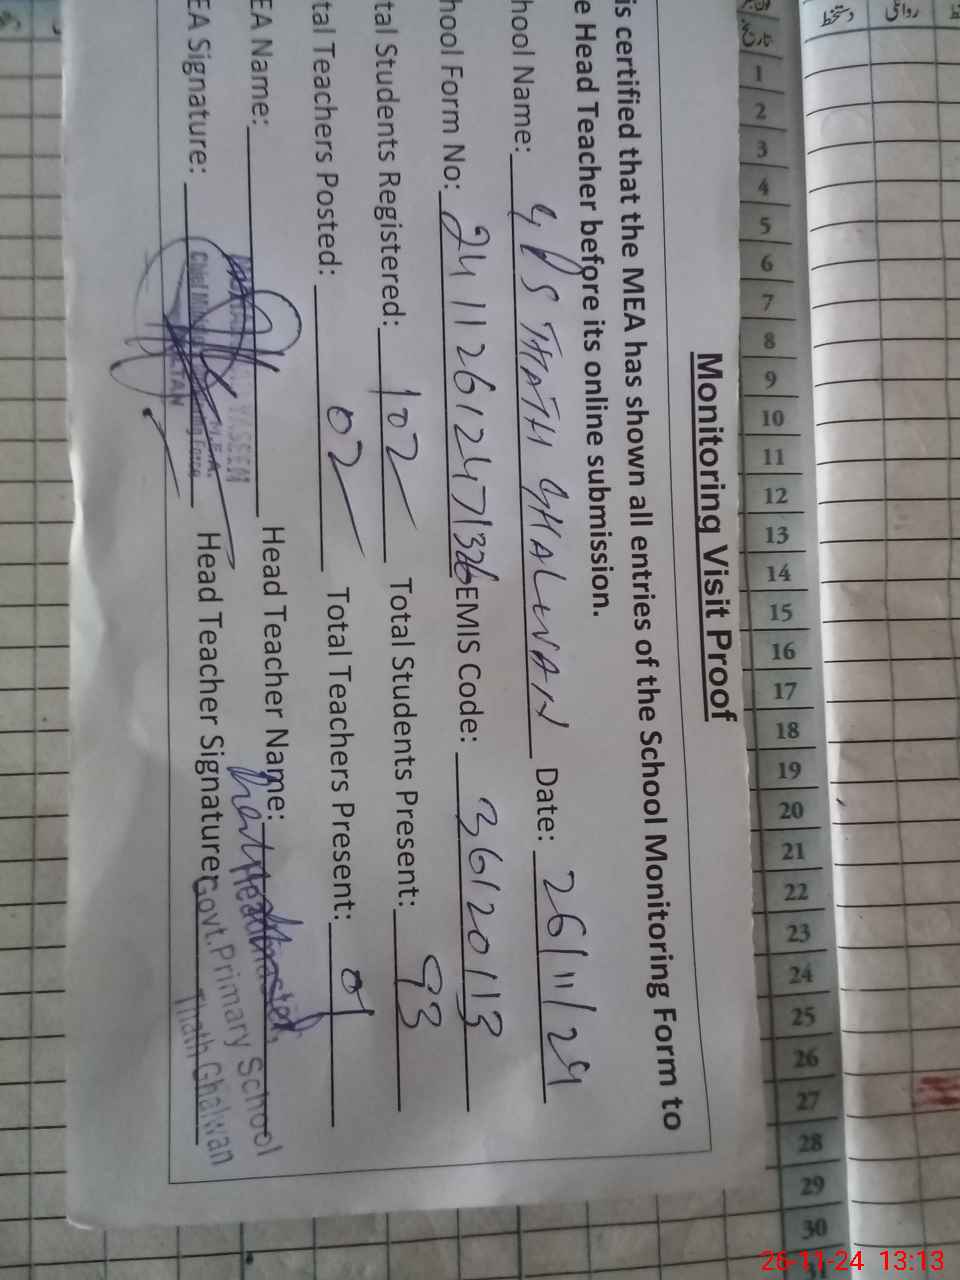 Monitoring Visit Proof
is certified that the MEA has shown all entries of the School Monitoring Form to
e Head Teacher before its online submission.
hool Name: GPS THATH GHALWAN Date: 26/11/24
hool Form No: 24112612471326 EMIS Code: 36120113
tal Students Registered: 102 Total Students Present: 93
tal Teachers Posted: 02 Total Teachers Present: 01
EA Name: YASEEN Head Teacher Name: Headmaster,
EA Signature: Head Teacher Signature:
Govt.Primary School
Thath Ghalwan
1 2 3 4 5 6 7 8 9 10 11 12 13 14 15 16 17 18 19 20 21 22 23 24 25 26 27 28 29 30
26-11-24 13:13